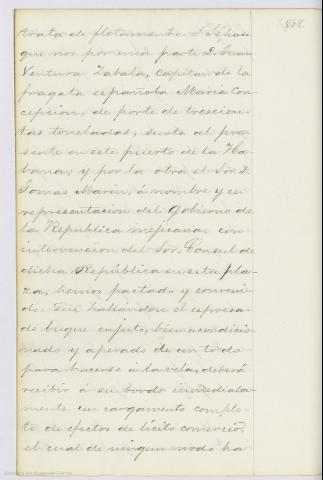 458.
trata de fletamento. Sépase
que nos por una parte D. Juan
Ventura Zabala, capitan de la
fragata española Maria Con-
cepcion, de porte de trescien-
tas toneladas, surta al pre-
sente en este puerto de la Ha-
bana; y por la otra el Sor. D.
Tomas Marin, á nombre y en
representacion del Gobierno de
la Republica mejicana, con
intervencion del Sor. Consul de
dicha República en esta pla-
za, hemos pactado y conveni-
do: Que hallandose el espresa-
do buque enjuto, bien acondicio-
nado y aperado de un todo
para hacerse á la vela, deberá
recibir á su bordo inmediata-
mente un cargamento comple-
to de efectos de lícito comercio,
el cual de ningun modo ha